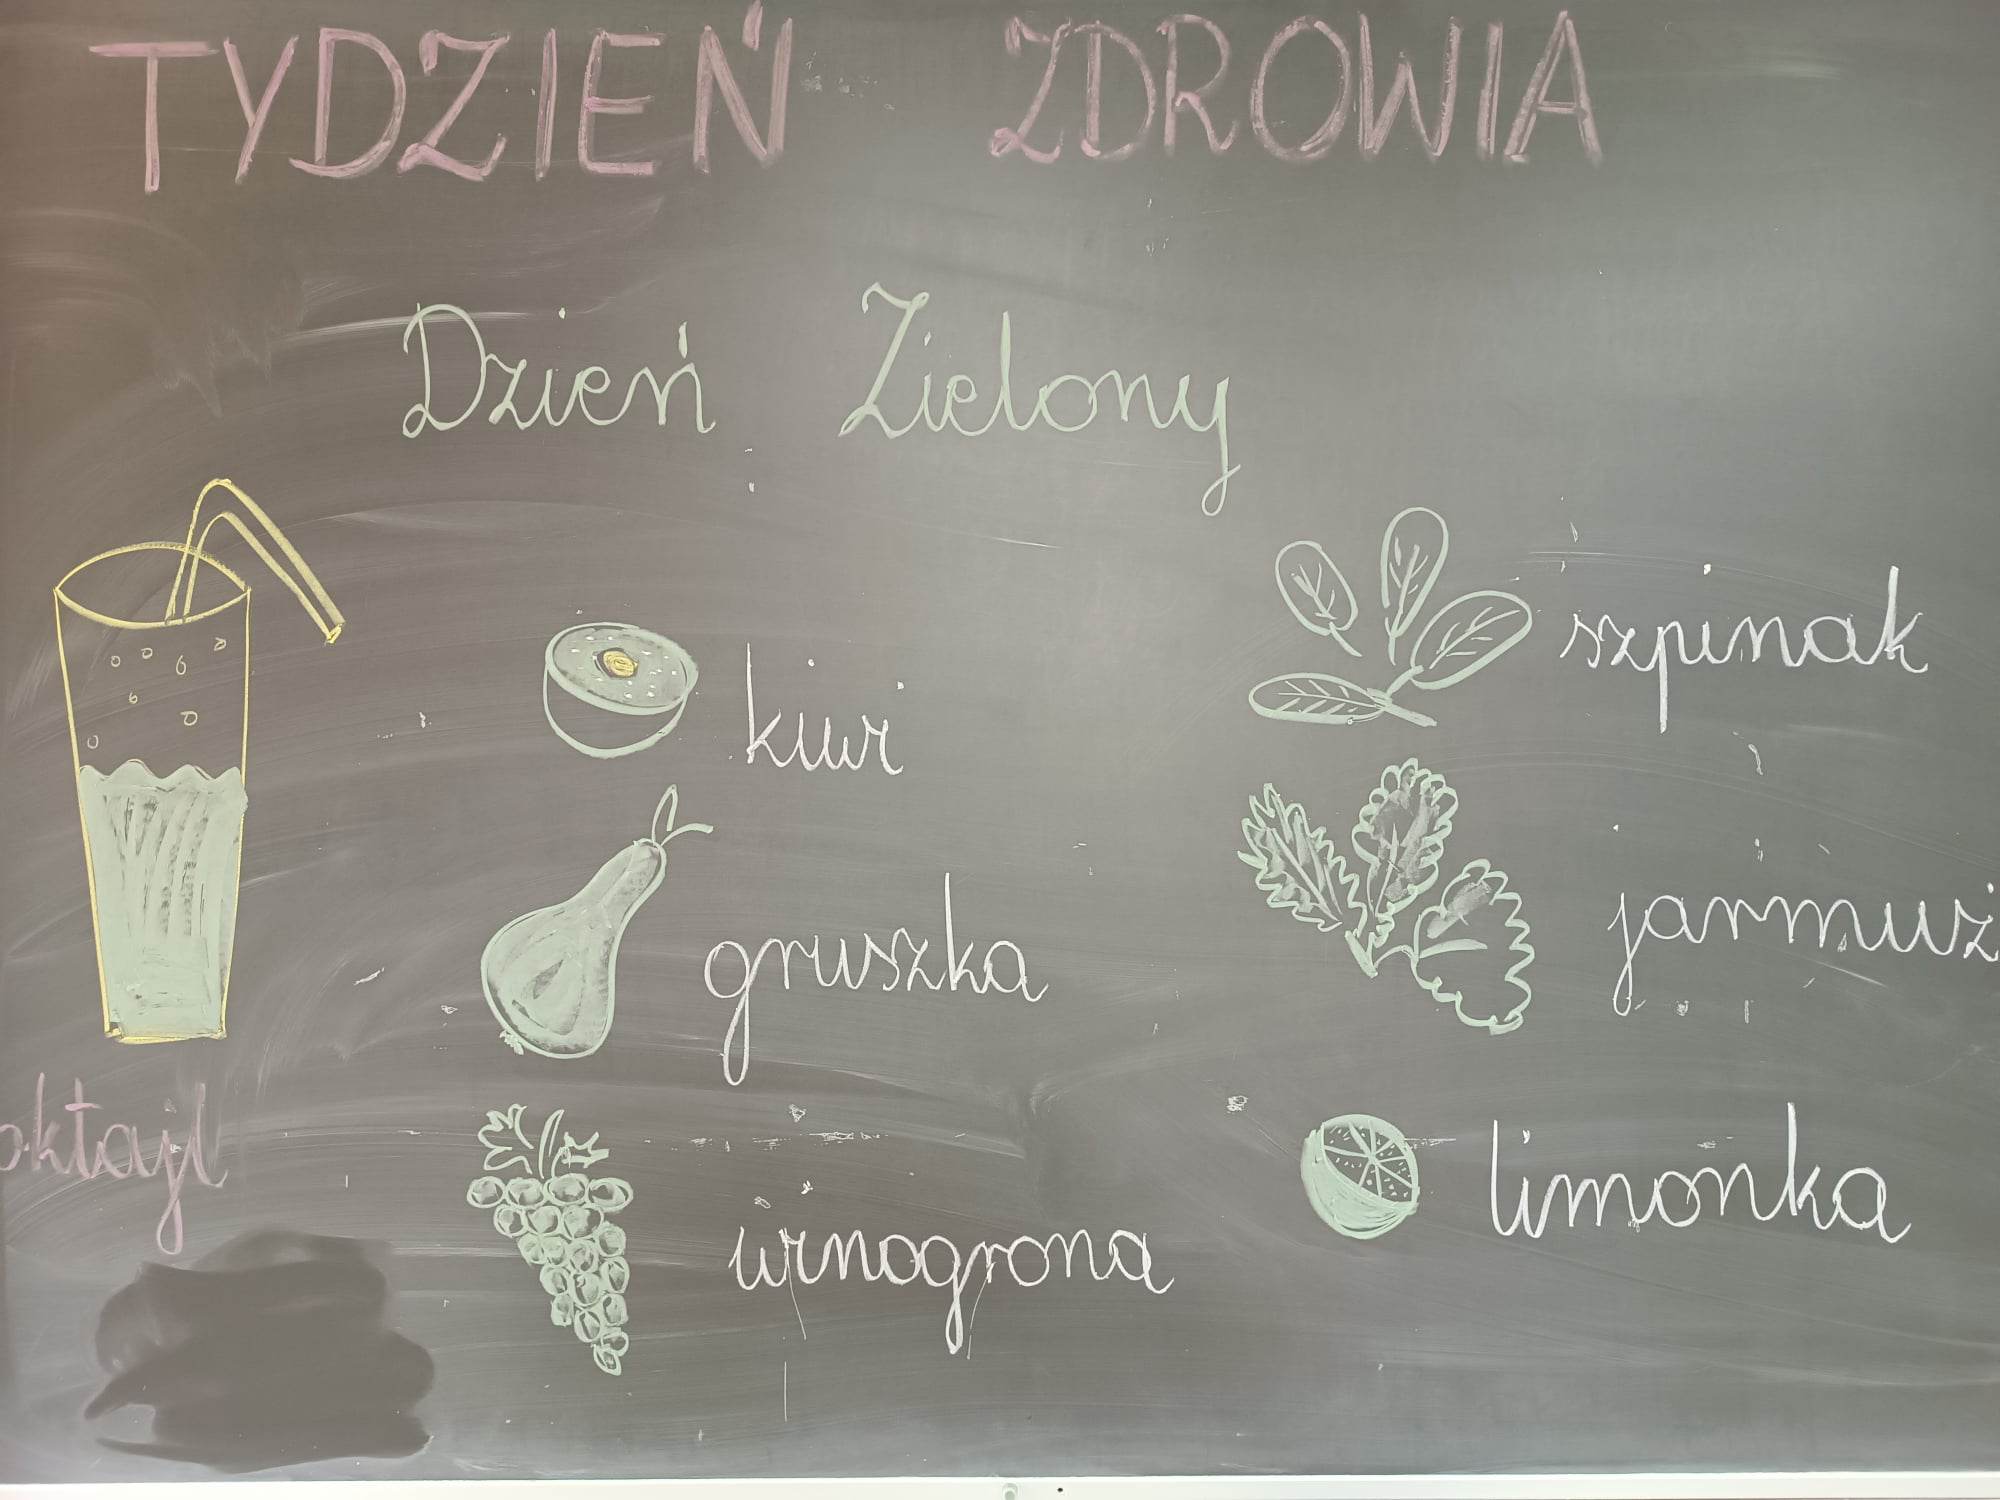 TYDZIEŃ ZDROWIA
Dzień Zielony
kiwi
gruszka
winogrona
szpinak
jarmuż
limonka
oktajl